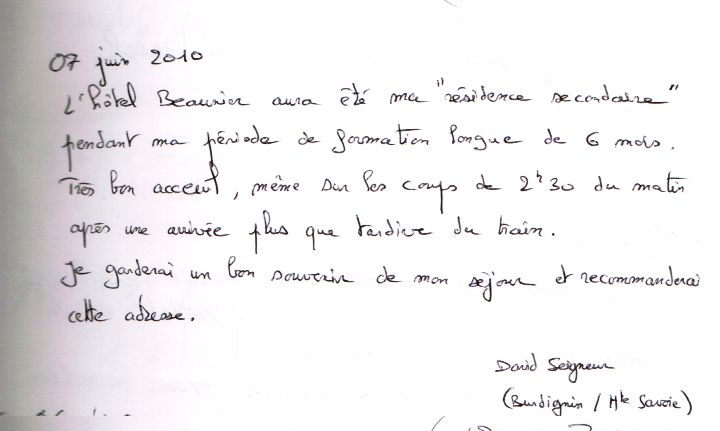 07 juin 2010
L'hôtel Beaunier aura été ma "résidence secondaire"
pendant ma période de formation longue de 6 mois.
Très bon acceuil, même sur les coups de 2h30 du matin
après une arrivée plus que tardive du train.
Je garderai un bon souvenir de mon séjour et recommanderai
cette adresse.
David Seigneur
(Burdignin / Hte Savoie)